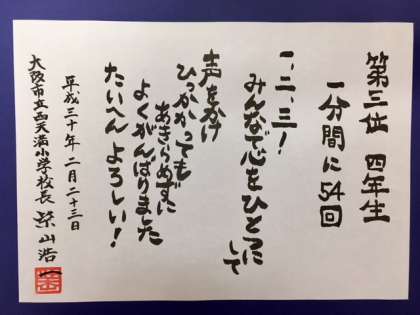 第三位 四年生
一分間に54回
一、二、三!
みんなで心をひとつにして
声をかけ
ひっかかっても
あきらめずに
よくがんばりました
たいへんよろしい!
平成三十年二月二十三日
大阪市立西天満小学校長 柴山浩一